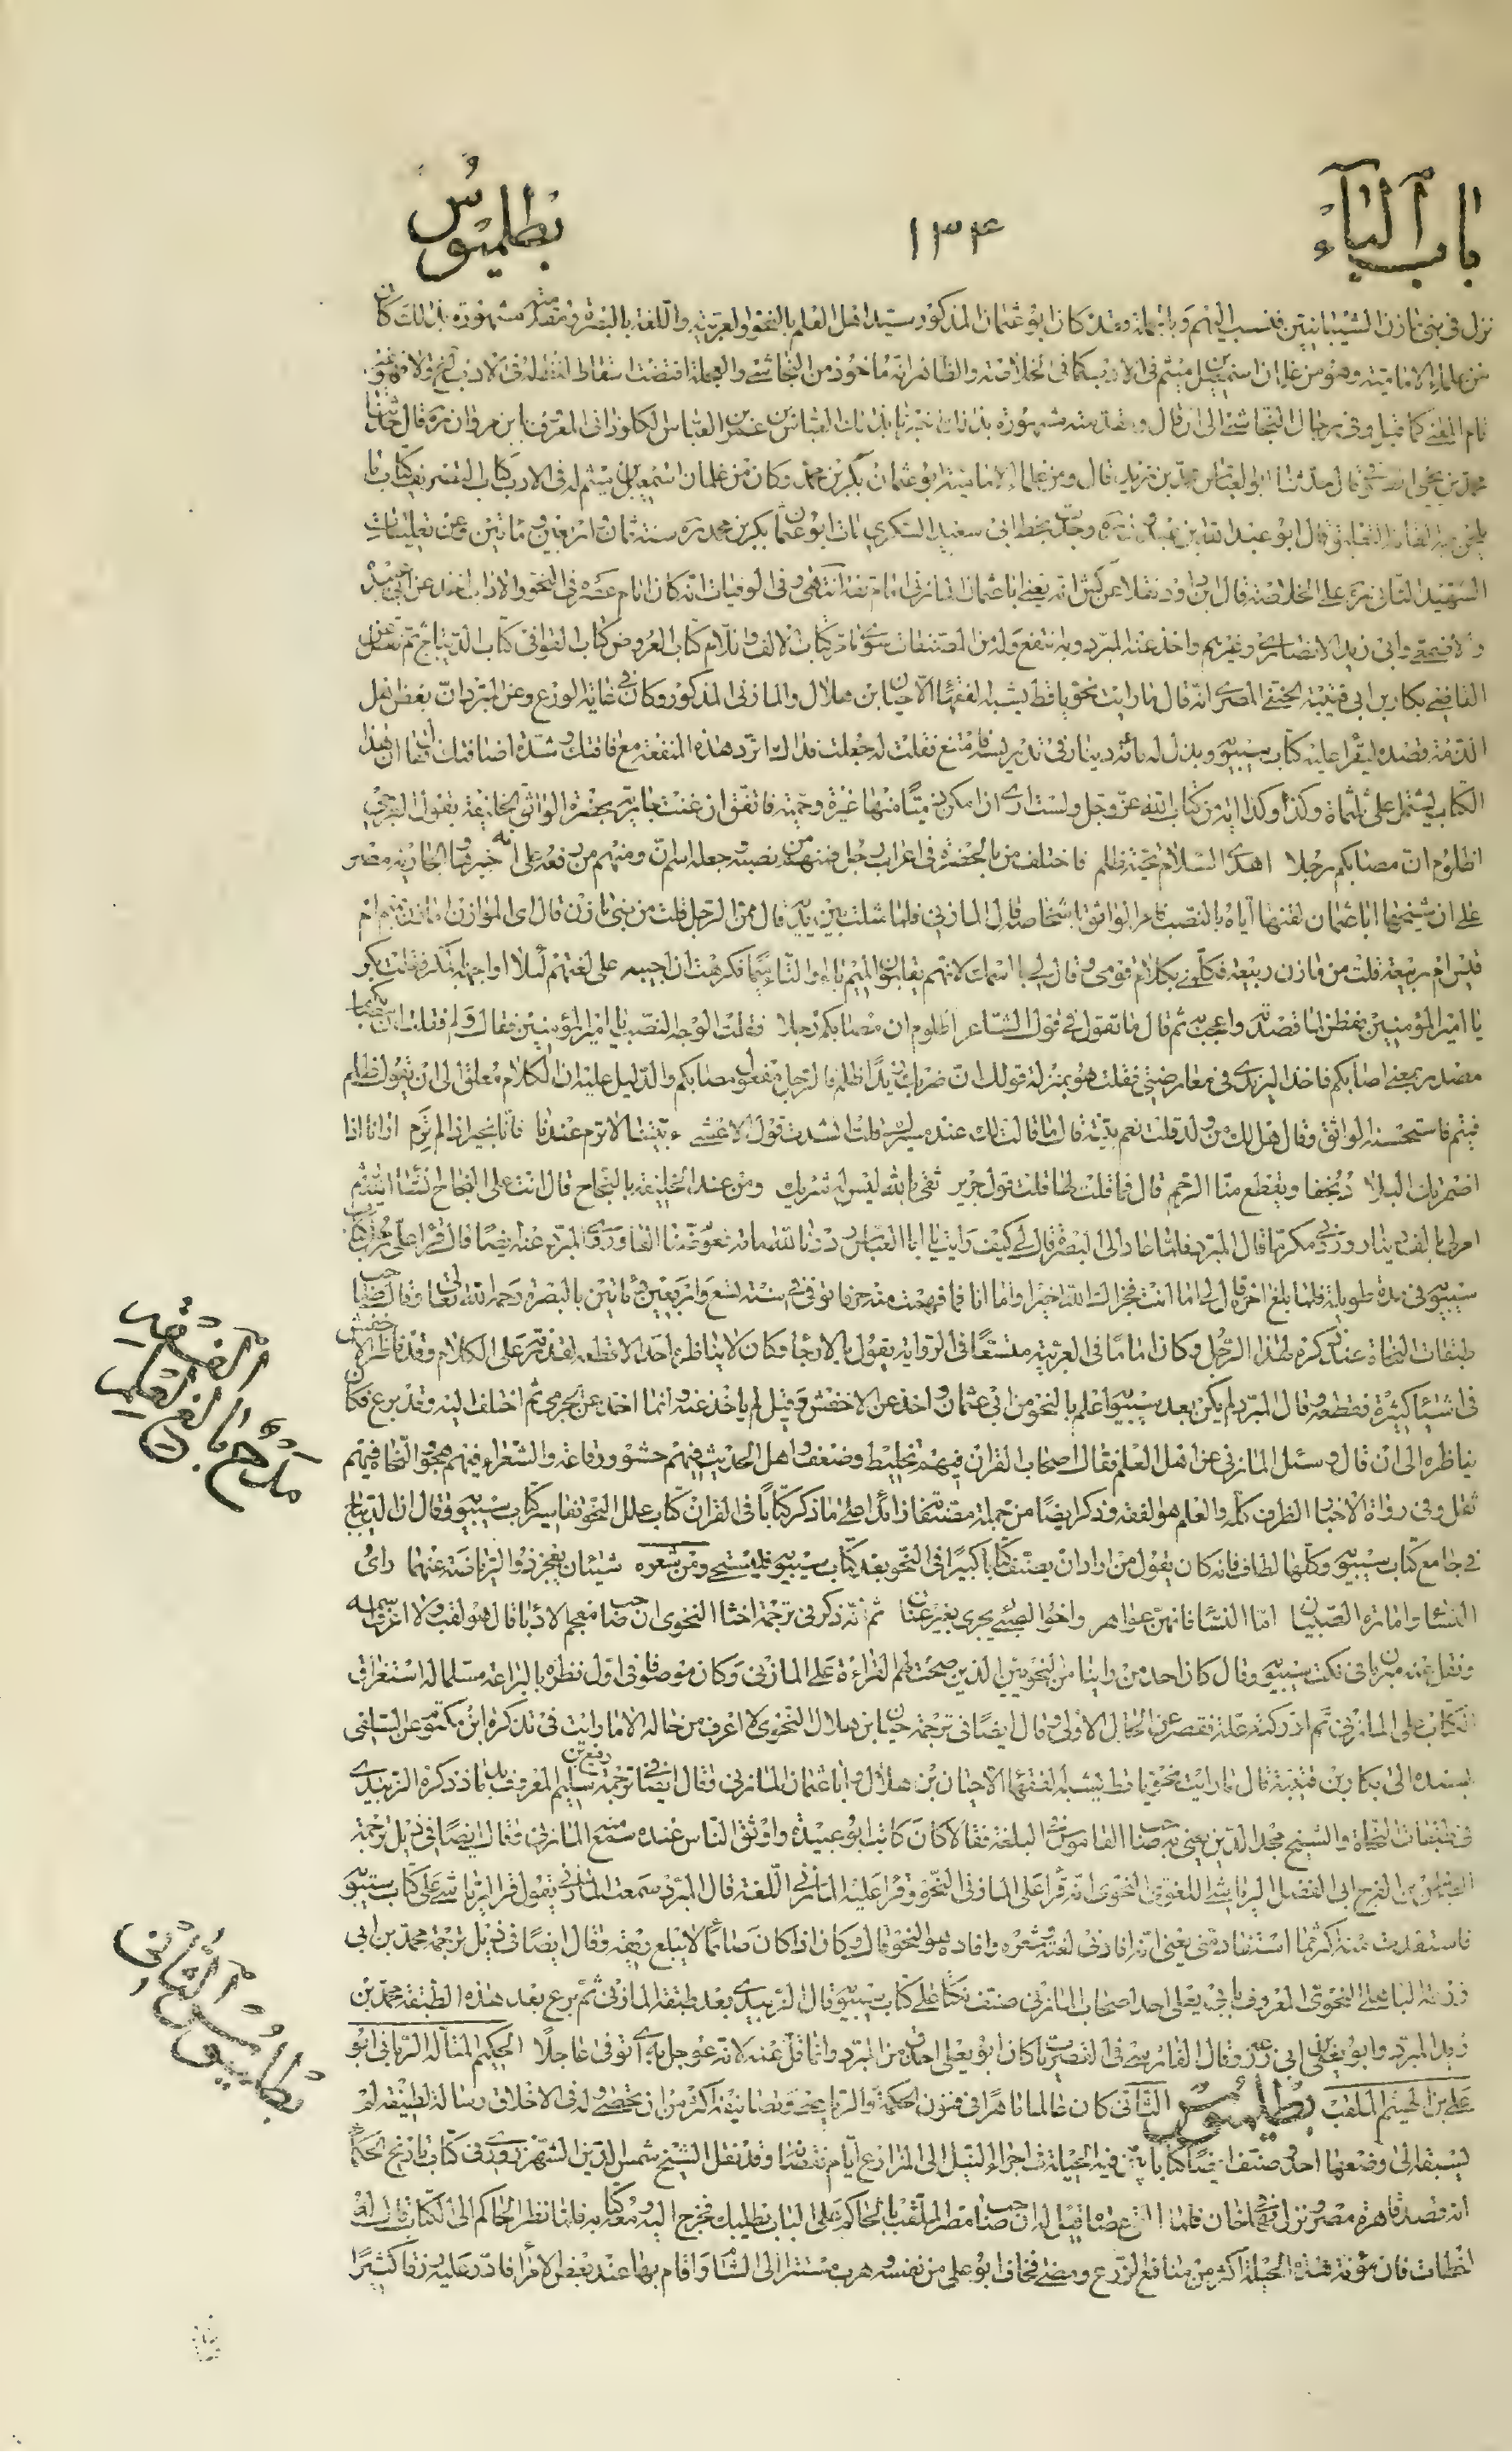 باب الباء
١٣٤
بطلميوس
نزل في بني مازن الشيبانيين فنسب اليهم وبالجملة وقد كان ابو عثمان المذكور سيد اهل العلم بالنحو والعربية واللغة بالبصرة ومقدمته مشهورة بذلك كان
من علماء الامامية وهو من غلمان اسمعيل بن ميثم في الادب كما في الخلاصة والظاهر انه مأخوذ من النجاشي والعجلة اقتضت اسقاط لفظ له في الادب
وفي رجال النجاشي الى ان قال ومقدمته مشهورة بذلك اخبرنا بذلك العباس بن عمر بن العباس الكلوذاني المعروف بابن مروان ره قال حدثنا
محمد بن يحيى الصولي قال حدثنا ابو العباس محمد بن يزيد قال ومن علماء الامامية ابو عثمان بكر بن محمد وكان من غلمان اسمعيل بن ميثم له في الادب كتاب التصريف كتاب ما
يلحن فيه العامة التعليق قال ابو عبد الله بن عبدون ره وجدت بخط ابي سعيد السكري مات ابو عثمان بكر بن محمد ره سنة ثمان واربعين ومأتين وعن تعليقات
الشهيد الثاني ره على الخلاصة قال ابن داود نقلا عن كش انه يعني ابا عثمان المازني امام ثقة انتهى وفي الوفيات انه كان امام عصره في النحو والاداب اخذ عن ابي عبيدة
والاصمعي وابي زيد الانصاري وغيرهم واخذ عنه المبرد وبه انتفع وله من المصنفات سوى ما مر كتاب الالف واللام كتاب العروض كتاب القوافي كتاب الديباج ثم نقل عن
القاضي بكار بن ابي قتيبة الحنفي المصري انه قال ما رايت نحويا قط يشبه الفقهاء الا حيان ابن هلال والمازني المذكور وكان في غاية الورع وعن المبرد ان بعض اهل
الذمة قصده ليقرأ عليه كتاب سيبويه وبذل له مائة دينار في تدريسه فامتنع فقلت له جعلت فداك اترد هذه المنفعة مع فاقتك وشدة اضاقتك فقال ان هذا
الكتاب يشتمل على ثلثمائة وكذا وكذا اية من كتاب الله عز وجل ولست ارى ان امكن ذميا منها غيرة وحمية فاتفق ان غنت جارية بحضرة الواثق الخليفة بقول العرجي
اظلوم ان مصابكم رجلا اهدى السلام تحية ظلم فاختلف من بالحضرة في اعراب رجل فمنهم من نصبه وجعله اسم ان ومنهم من رفعه على انه خبرها والجارية مصر
على ان شيخها ابا عثمان لقنها اياه بالنصب فامر الواثق باشخاصه قال المازني فلما مثلت بين يديه قال ممن الرجل قلت من بني مازن قال اي الموازن مازن تميم ام
قيس ام ربيعة قلت من مازن ربيعة فكلمني بكلام قومي وقال لي با اسمك لانهم يقلبون الميم باء والباء ميما فكرهت ان اجيبه على لغتهم لئلا اواجهه بمكر فقلت بكر
يا امير المؤمنين ففطن لما قصدته واعجب به ثم قال ما تقول في قول الشاعر اظلوم ان مصابكم رجلا فقلت الوجه النصب يا امير المؤمنين فقال ولم فقلت ان مصابكم
مصدر بمعنى اصابكم فاخذ اليزيدي في معارضتي فقلت هو بمنزلة قولك ان ضربك زيدا ظلم فالرجل مفعول مصابكم والدليل عليه ان الكلام معلق الى ان يقول ظلم
فيتم فاستحسنه الواثق وقال هل لك من ولد قلت نعم بنية قال ما قالت لك عند مسيرك قلت انشدت قول الاعشى ابتنا لا ترم عندنا فانا بخير اذا لم ترم ارانا اذا
اضمرتك البلاد نجفا ويقطع منا الرحم قال فما قلت لها قلت قول جرير ثقي بالله ليس له شريك ومن عند الخليفة بالنجاح قال انت على النجاح انشاء الله ثم
امر لي بالف دينار وردني مكرما قال المبرد فلما عاد الى البصرة قال لي كيف رايت يا ابا العباس رددنا لله مائة فعوضنا الفا وروى المبرد عنه ايضا قال قرأ علي رجل كتاب
سيبويه في مدة طويلة فلما بلغ اخره قال لي اما انت فجزاك الله خيرا واما انا فما فهمت منه حرفا توفي سنة تسع واربعين ومأتين بالبصرة رحمه الله تعالى وقال صاحب
طبقات النحاة عند ذكره لهذا الرجل وكان اماما في العربية متسعا في الرواية يقول بالارجاء وكان لا يناظره احد الا قطعه لقدرته على الكلام وقد ناظر الاخفش
في اشياء كثيرة فقطعه وقال المبرد لم يكن بعد سيبويه اعلم بالنحو من ابي عثمان واخذ عن الاخفش وقيل لم يأخذ عنه وانما اخذ عن الجرمي ثم اختلف اليه وقد برع فكان
يناظره الى ان قال وسئل المازني عن اهل العلم فقال اصحاب القران فيهم تخليط وضعف واهل الحديث فيهم حشو ورقاعة والشعراء فيهم هوج والنحاة فيهم
ثقل وفي رواة الاخبار الظرف كله والعلم هو الفقه وذكر ايضا من جملة مصنفاته زائدا على ما ذكر كتابا في القران كتاب علل النحو تفاسير كتاب سيبويه وقال ان الديباج
في جامع كتاب سيبويه وكلها لطاف فانه كان يقول من اراد ان يصنف كتابا كبيرا في النحو بعد كتاب سيبويه فليستحي ومن شعره شيئان يعجز ذو الرياضة عنهما راي
النساء وامارة الصبيان اما النساء فانهن عواهر واخو الصبي يجري بغير عنان ثم انه ذكر في ترجمة النحوي ان صاحب معجم الادباء قال هو لقب ولا اعرف اسمه
ونقل عنه مبرمان في نكت سيبويه وقال كان احد من راينا من النحويين الذين صحت لهم القراءة على المازني وكان موصوفا في اول نظره بالبراعة مسلما له استغراق
الكتاب على المازني ثم ادركته علة فقصر عن الحال الاولى وقال ايضا في ترجمة حيان ابن هلال النحوي لا اعرف من حاله الا ما رايت في تذكرة ابن مكتوم عن السلفي
بسنده الى بكار بن قتيبة قال ما رايت نحويا قط يشبه الفقهاء الا حيان بن هلال وابا عثمان المازني وقال ايضا في ترجمة رفيع بن سليم المعروف ذكره الزبيدي
في طبقات النحاة والشيخ مجد الدين يعني به صاحب القاموس في البلغة فقالا كان كاتب ابو عبيدة واوثق الناس عنده سمع منه المازني وقال ايضا في ذيل ترجمة
العباس بن الفرج ابي الفضل الرياشي اللغوي النحوي انه قرأ على المازني النحو وقرأ عليه المازني اللغة قال المبرد سمعت المازني يقول قرأ الرياشي علي كتاب سيبويه
فاستفدت منه اكثر مما استفاد مني يعني انه افادني لغته وشعره وافاده هو النحو قال وكان اذا كان صائما لا يبلع ريقه وقال ايضا في ذيل ترجمة محمد بن ابي
زرعة الباهلي النحوي المعروف بابي يعلى احد اصحاب المازني صنف نكتا على كتاب سيبويه قال الزبيدي بعد طبقة المازني ثم برع بعد هذه الطبقة محمد بن
يزيد المبرد وابو يعلى بن ابي زرعة وقال الفارسي في القصريات كان ابو يعلى احذق من المبرد وانما قل عنه لانه عوجل به اي توفي عاجلا الحكيم المتأله الرباني ابو
علي بن الهيثم الملقب بطلميوس الثاني كان عالما ماهرا في فنون الحكمة والرياضي وتصانيفه اكثر من ان تحصى وله في الاخلاق رسالة لطيفة لم
يسبقه الى وضعها احد وصنف ايضا كتابا بين فيه الحيلة في اجراء النيل الى المزارع ايام نقصانه وقد نقل الشيخ شمس الدين الشهرزوري في كتاب تاريخ الحكماء
انه قصد قاهرة مصر ونزل في خان فلما قيل له ان صاحب مصر الملقب بالحاكم على الباب يطلبك فخرج اليه ومعه كتابه فلما نظر الحاكم الى الكتاب قال له
اخطأت فان مؤنة هذه الحيلة اكثر من منافع الزرع ومضى فخاف ابو علي من نفسه وهرب مستترا الى الشام واقام بها عند بعض الامراء فادر عليه رزقا كثيرا
بطلميوس الثاني